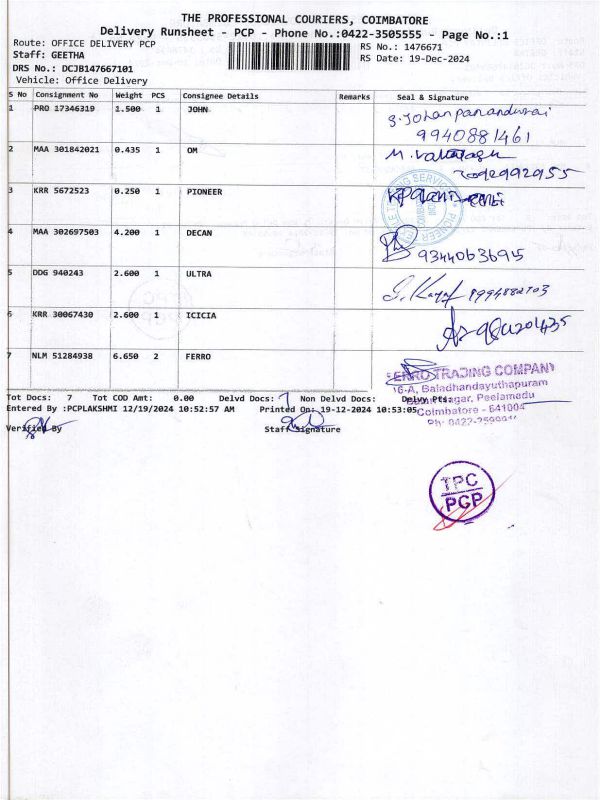 THE PROFESSIONAL COURIERS, COIMBATORE
Delivery Runsheet - PCP - Phone No.:0422-3505555 - Page No.:1
Route: OFFICE DELIVERY PCP
Staff: GEETHA
RS No.: 1476671
RS Date: 19-Dec-2024
DRS No.: DCJB147667101
Vehicle: Office Delivery
S No Consignment No Weight PCS Consignee Details Remarks Seal & Signature
1 PRO 17346319 1.500 1 JOHN
9940881461
2 MAA 301842021 0.435 1 OM
3 KRR 5672523 0.250 1 PIONEER
4 MAA 302697503 4.200 1 DECAN
9344063695
5 DDG 940243 2.600 1 ULTRA
6 KRR 30067430 2.600 1 ICICIA
7 NLM 51284938 6.650 2 FERRO
FERRO TRADING COMPANY
16-A, Baladhandayuthapuram
Nagar, Peelamedu
Coimbatore - 641004
Tot Docs: 7 Tot COD Amt: 0.00 Delvd Docs: 7 Non Delvd Docs: Delvy Pts:
Entered By :PCPLAKSHMI 12/19/2024 10:52:57 AM Printed On: 19-12-2024 10:53:05
Verified By Staff Signature
TPC
PCP